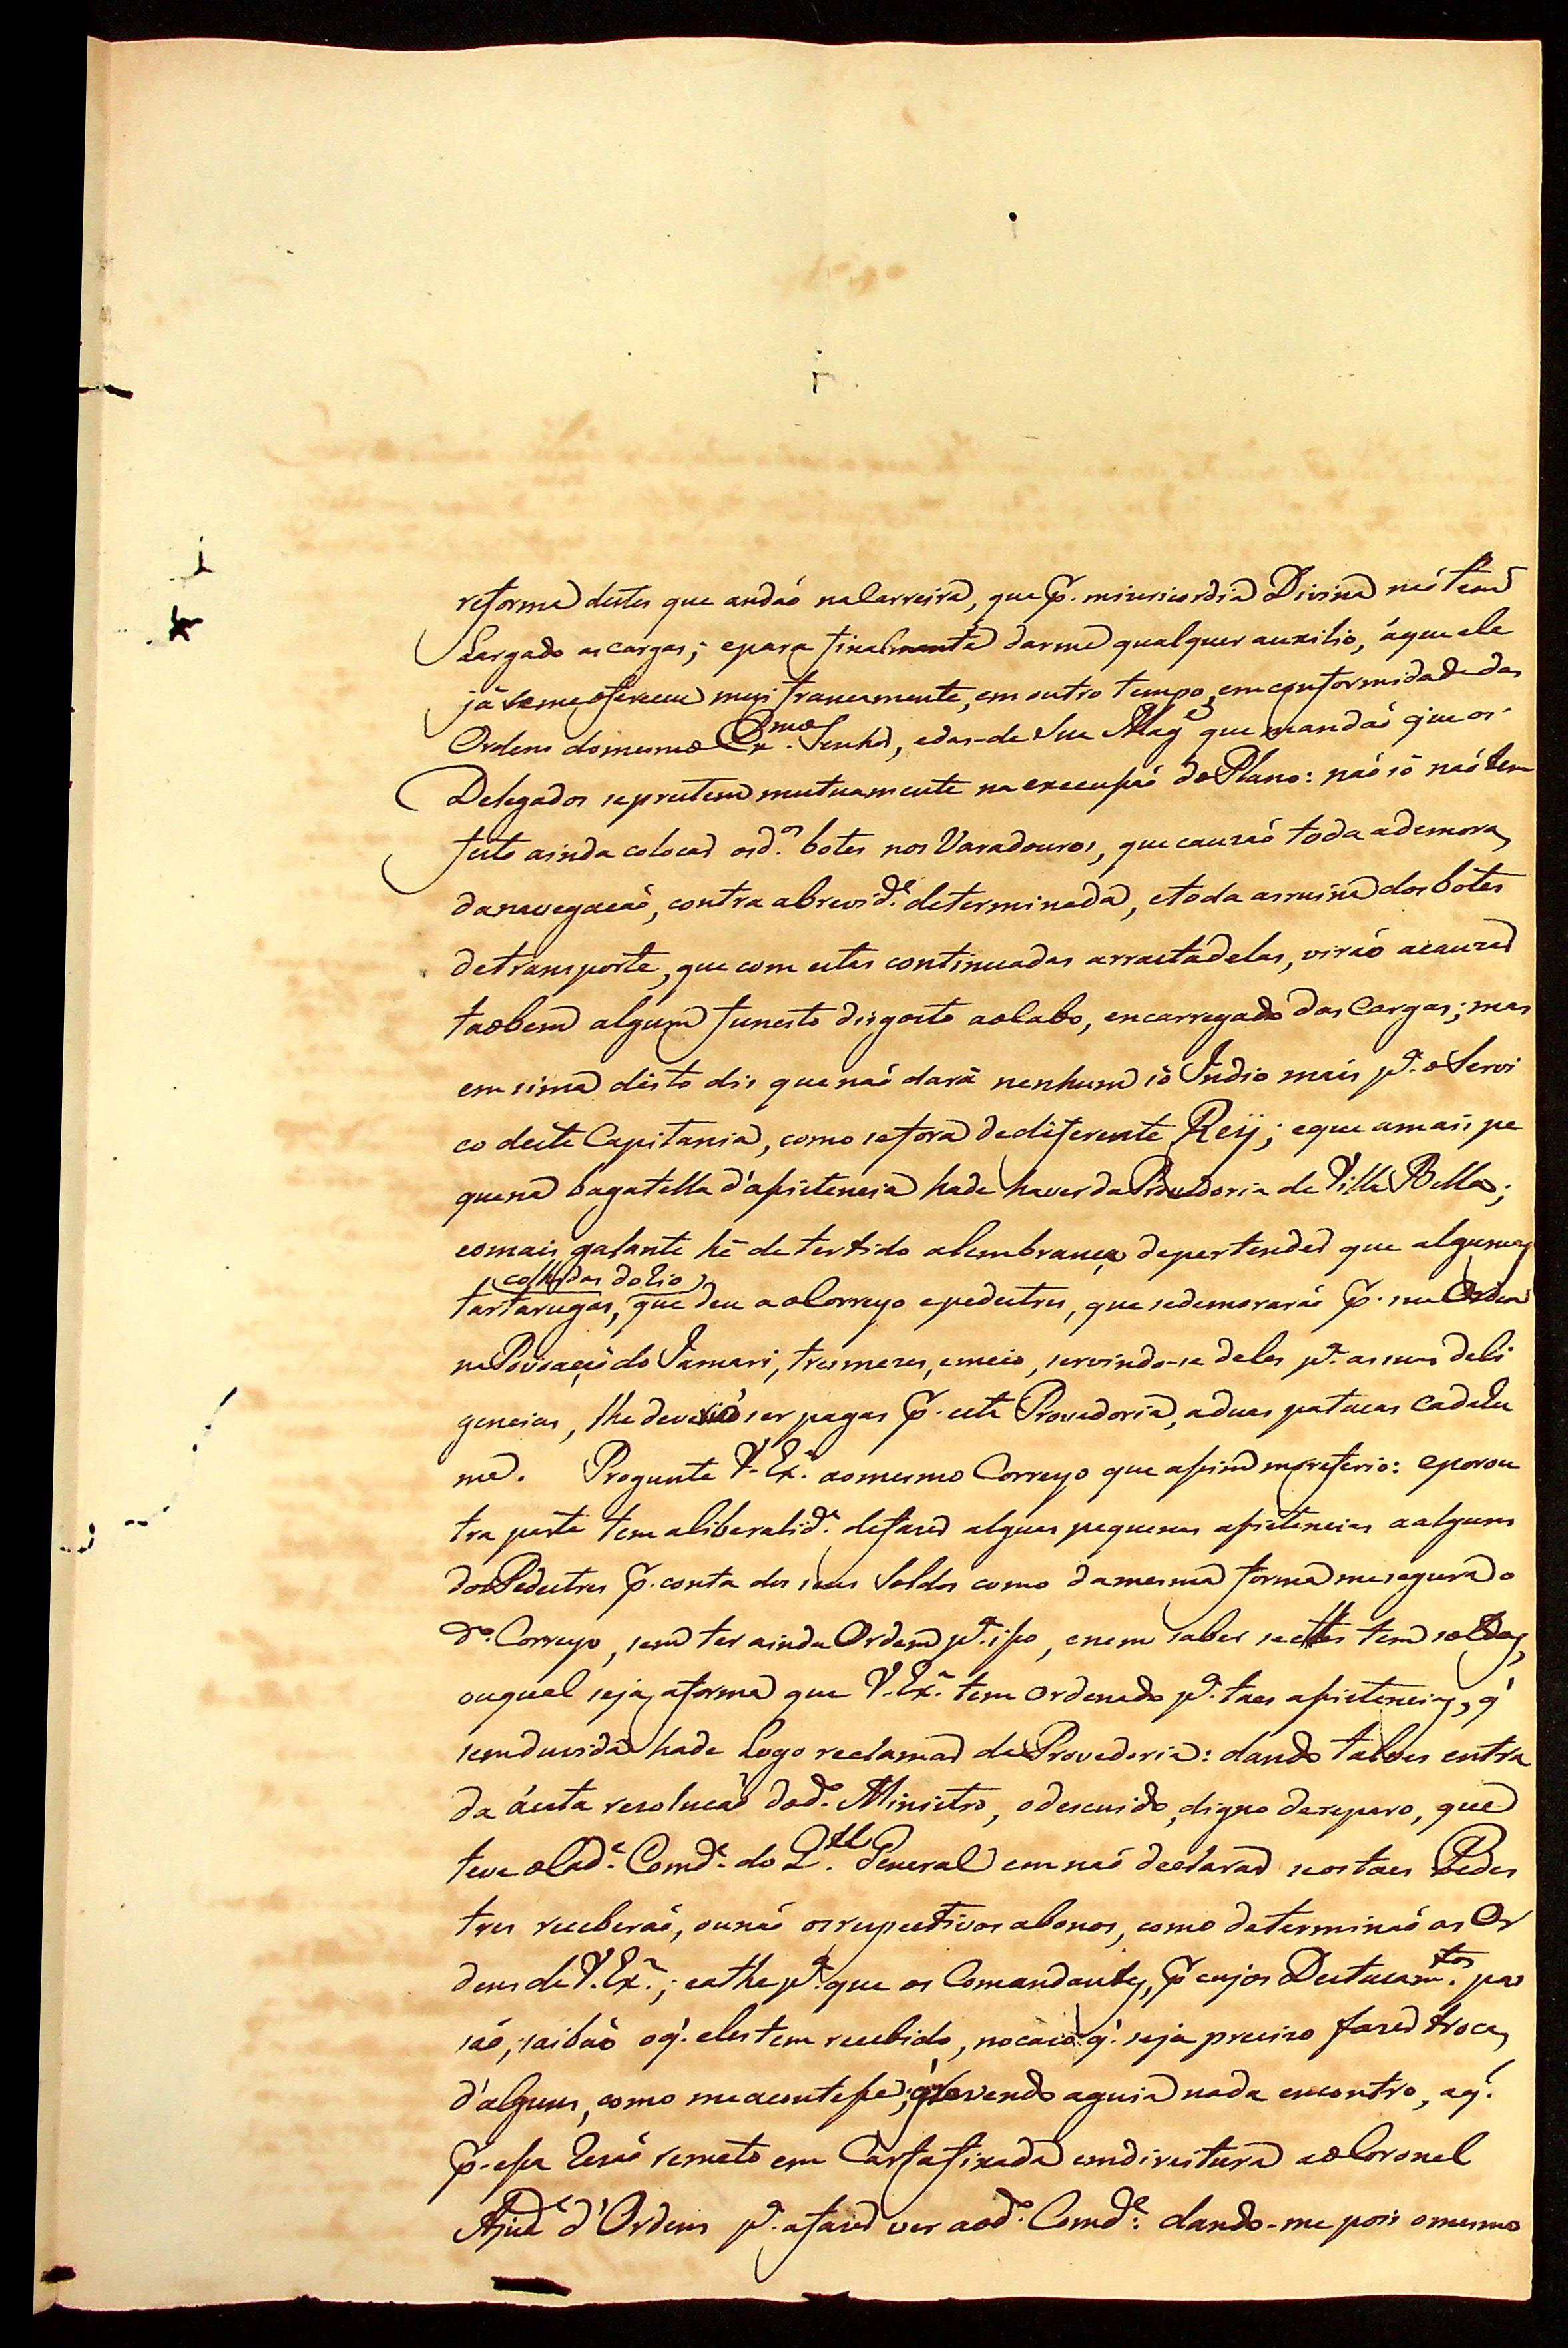 reforma destes que andaõ na Carreira, que p. misericordia Divina naõ tem
Largado as cargas; e para finalmente darme qualquer auxilio, áque ele
já se me ofereceu mui francamente, em outro tempo, em conformidade das
Ordens do mesmo Ex.mo Senhor, e das de Sua Mag.e que mandaõ que os
Delegados se prestem mutuamente na execusaõ do Plano: naõ só naõ tem
feito ainda colocar os d.os botes nos Varadouros, que cauzaõ toda a demora
da navegacaõ, contra a brevid.e determinada, e toda a ruina dos bótes
de transporte, que com estas continuadas arrastadelas, viráõ a cauzar
taobem algum funesto disgosto ao Cabo, encarregado das Cargas; mas
em sima désto dis que naõ dará nenhum só Indio mais p.a o Servi
co deste Capitania, como se fora de diferente Reij; e que a mais pe
quena bagatella d'asistencia hade haver da Provedoria de Villa Bella;
e o mais galante hé de ter tido a lembrança de pertender que algumas
colhidas do Rio
tartarugas, que deu ao Correyo e pedestres, que se demoraráõ p. sua Ordem
na Povoaçaõ do Jamari, tres mezes, e meio, servindo-se deles p.a as suas deli
gencias, lhe deveráõ ser pagas p. esta Provedoria, a duas patacas cada hu
ma. Progunte V. Ex.a ao mesmo Correyo que asim mo referio: e por ou
tra parte tem a liberalid.e de fazer alguas pequenas asistencias a alguns
dos Pedestres p. conta dos seus Soldos como da mesma forma me segura o
d.o Correyo, sem ter ainda Ordem p.a iso, e nem saber se elles tem soldos,
ou qual seja a forma que V. Ex.a tem Ordenado p.a taes asistencias, q'
sem duvida hade Logo reclamar da Provedoria: dando talves entra
da áesta resolucaõ do d.o Ministro, o descuido, digno de reparo, que
teve o Cad.e Comd.e do Q.tel General em naõ declarar se os taes Pedes
tres receberaõ, ou naõ os respectivos abonos, como determinaõ as Or
dens de V. Ex.a; e athe p.a que os Comandantes, p. cujos Destacam.tos pas
saõ, saibaõ o q'. eles tem recebido, no caso q'. seja preciso fazer troca
d'alguns, como me acontese; q' vendo a guia nada encontro, a q'.
p. esa rezaõ remeto em Carta fixada em direitura ao Coronel
Ajud.e d'Ordens p.a a fazer ver ao d.o Comd.e: dando-me pois o mesmo